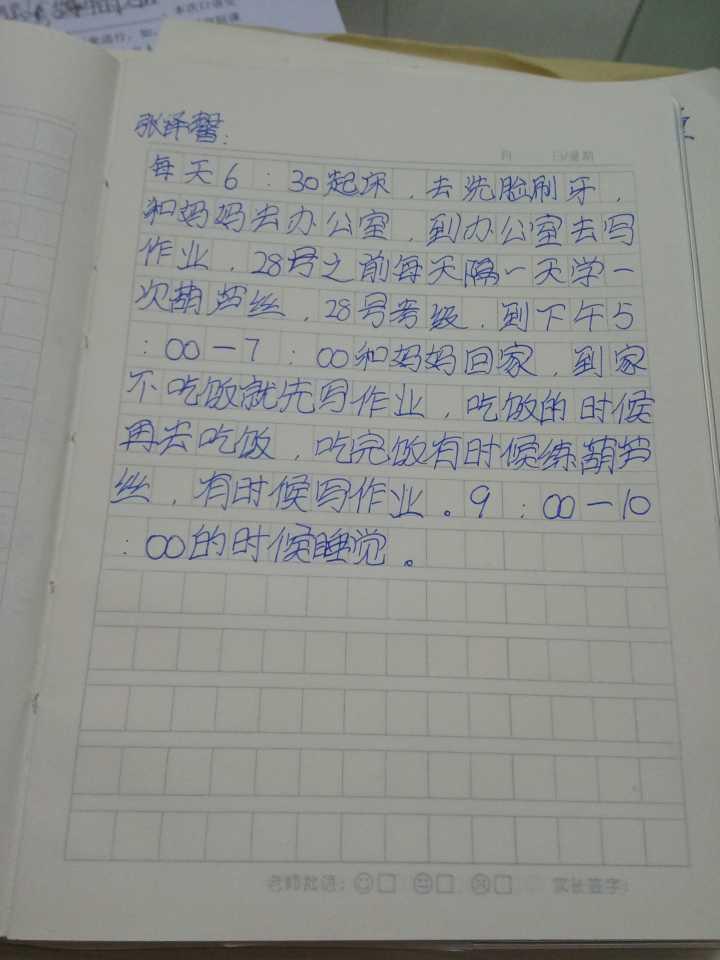 本次口语交
张译馨:
月 日/星期
每天6:30起床,去洗脸刷牙,
和妈妈去办公室,到办公室去写
作业,28号之前每天隔一天学一
次葫芦丝,28号考级,到下午5
:00-7:00和妈妈回家,到家
不吃饭就先写作业,吃饭的时候
再去吃饭,吃完饭有时候练葫芦
丝,有时候写作业。9:00-10
:00的时候睡觉。
老师批语: 家长签字: